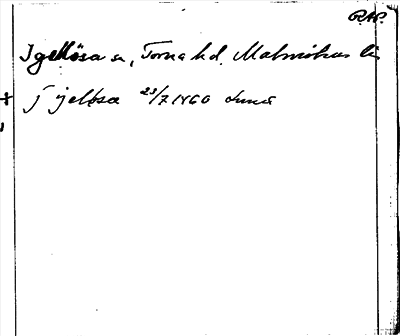 RAP.
Igellösa sn, Torna hd. Malmöhus län
j jgelösa 23/7 1460 Lund